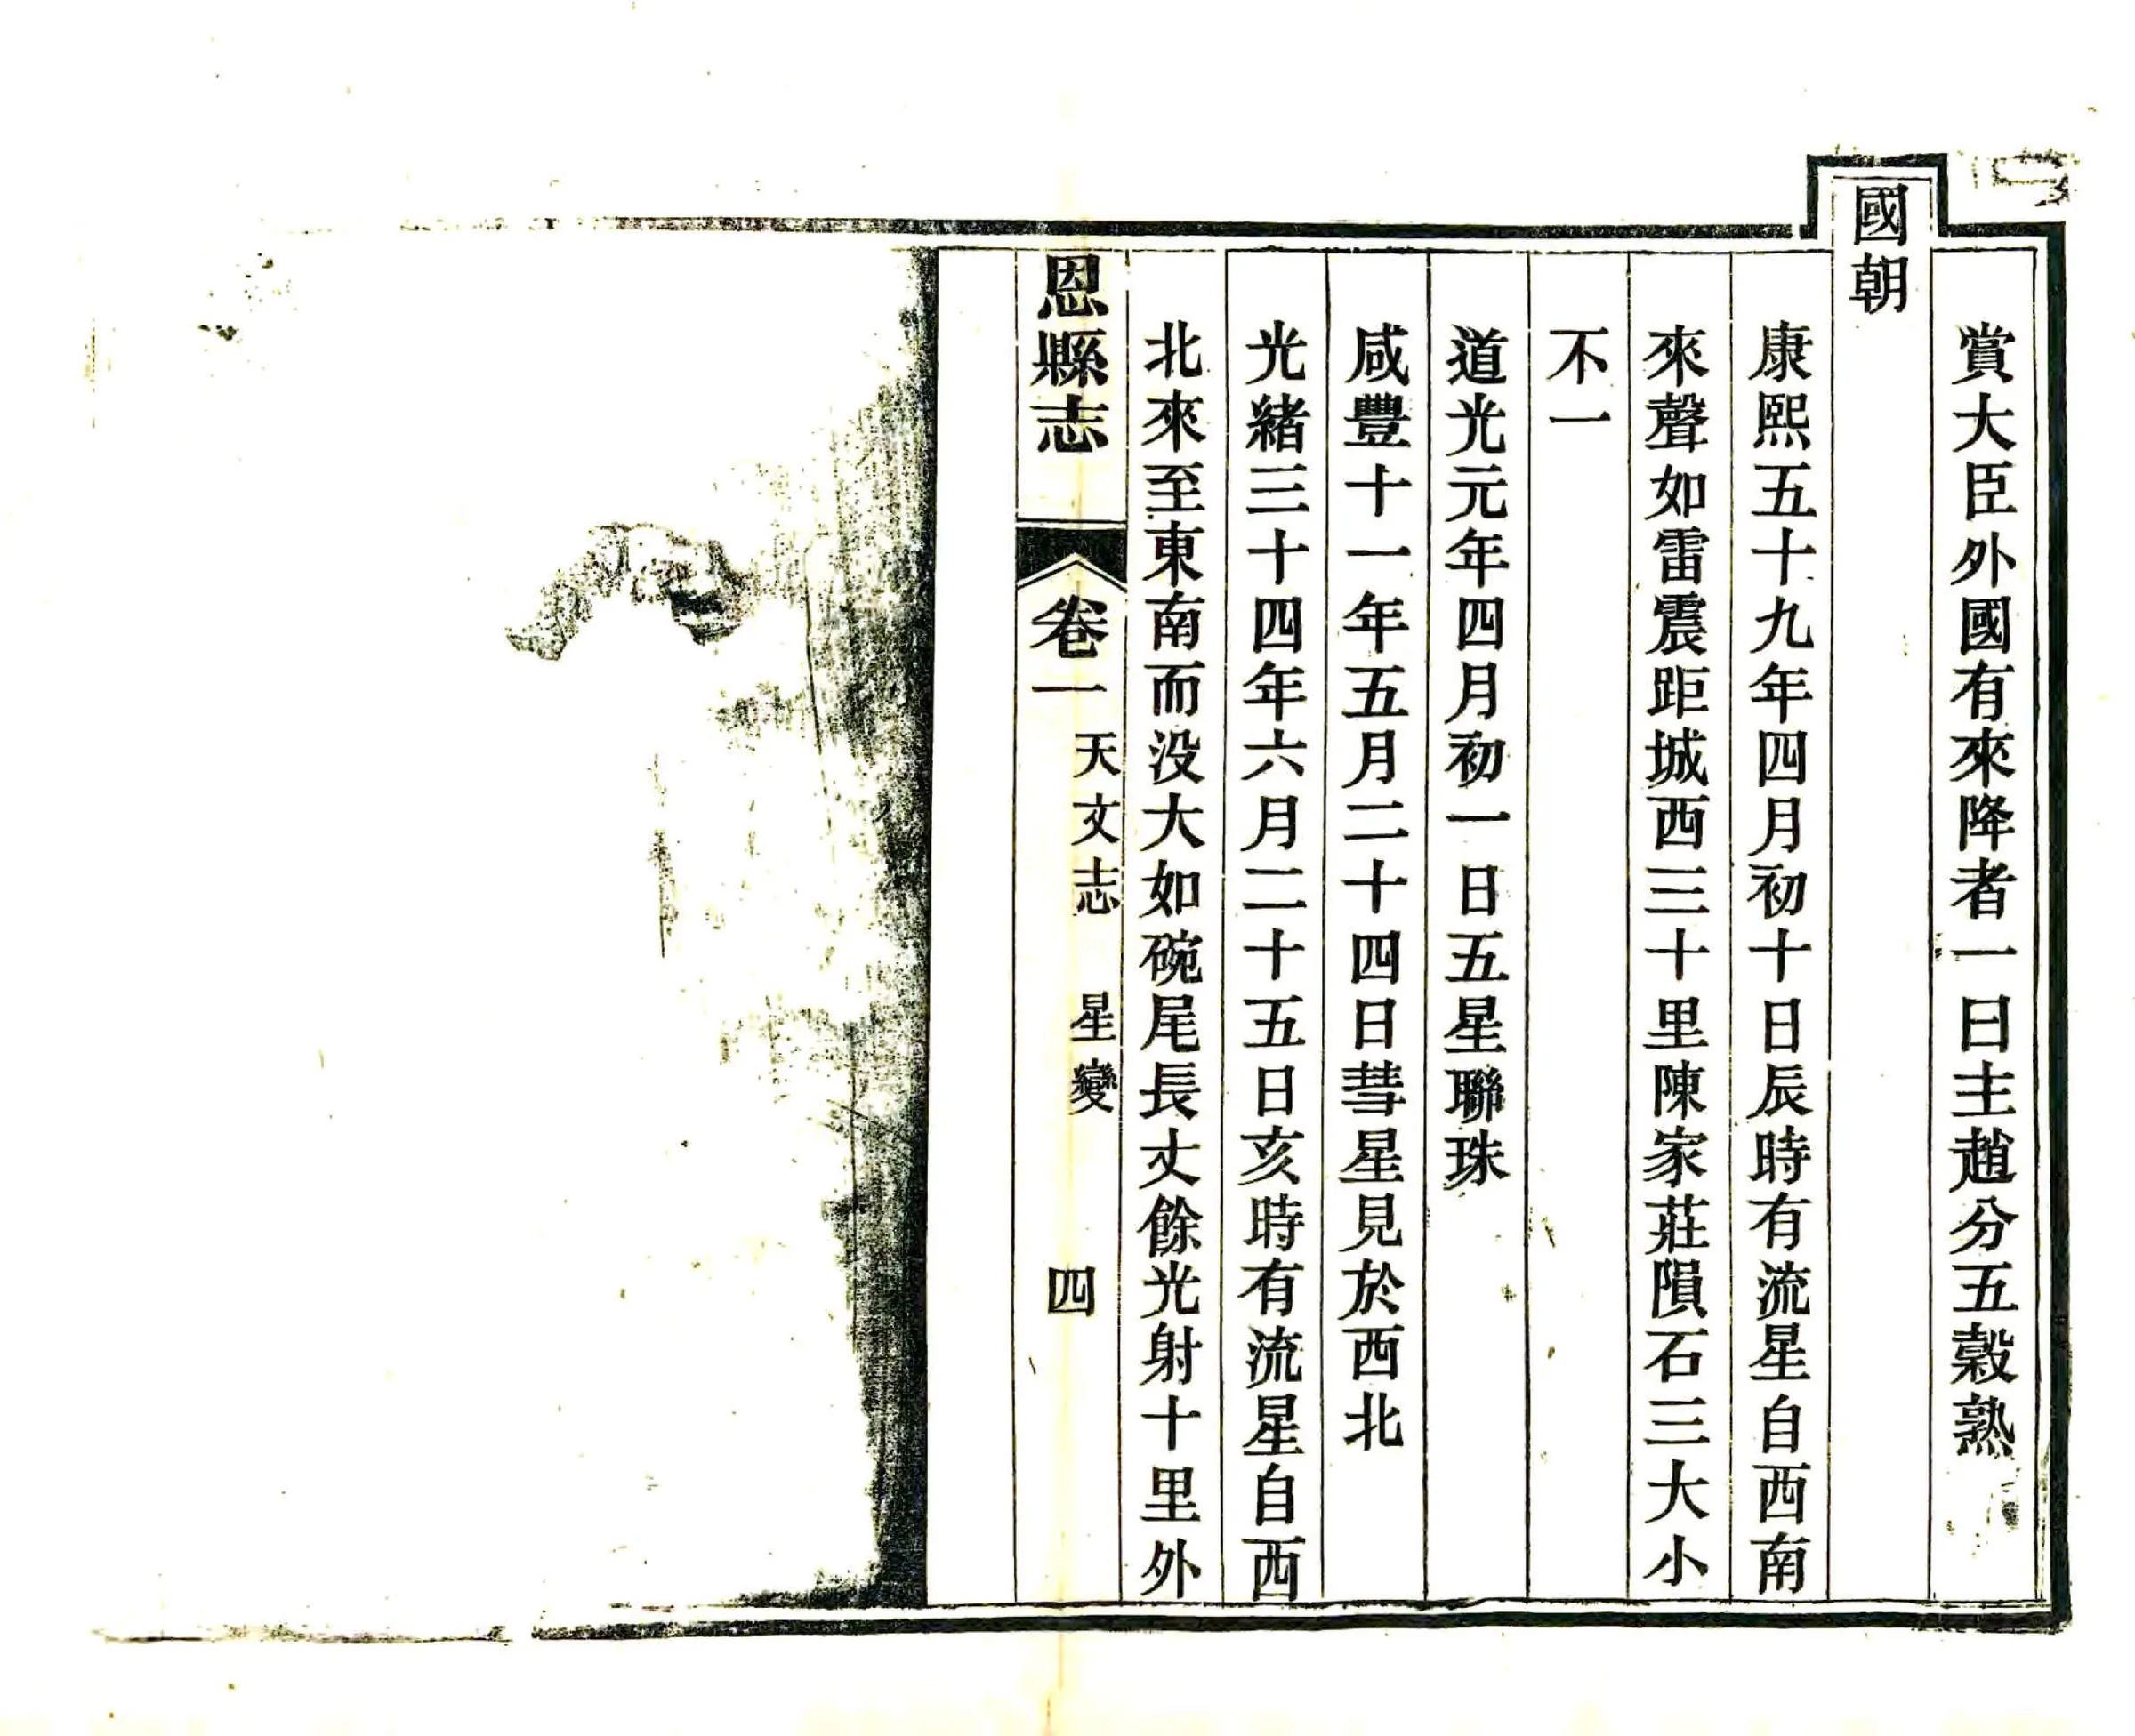 賞大臣外國有來降者一曰主趙分五穀熟
國朝
康熙五十九年四月初十日辰時有流星自西南
來聲如雷震距城西三十里陳家莊隕石三大小
不一
道光元年四月初一日五星聯珠
咸豐十一年五月二十四日彗星見於西北
光緒三十四年六月二十五日亥時有流星自西
北來至東南而没大如碗尾長丈餘光射十里外
恩縣志
卷一
天文志 星變
四